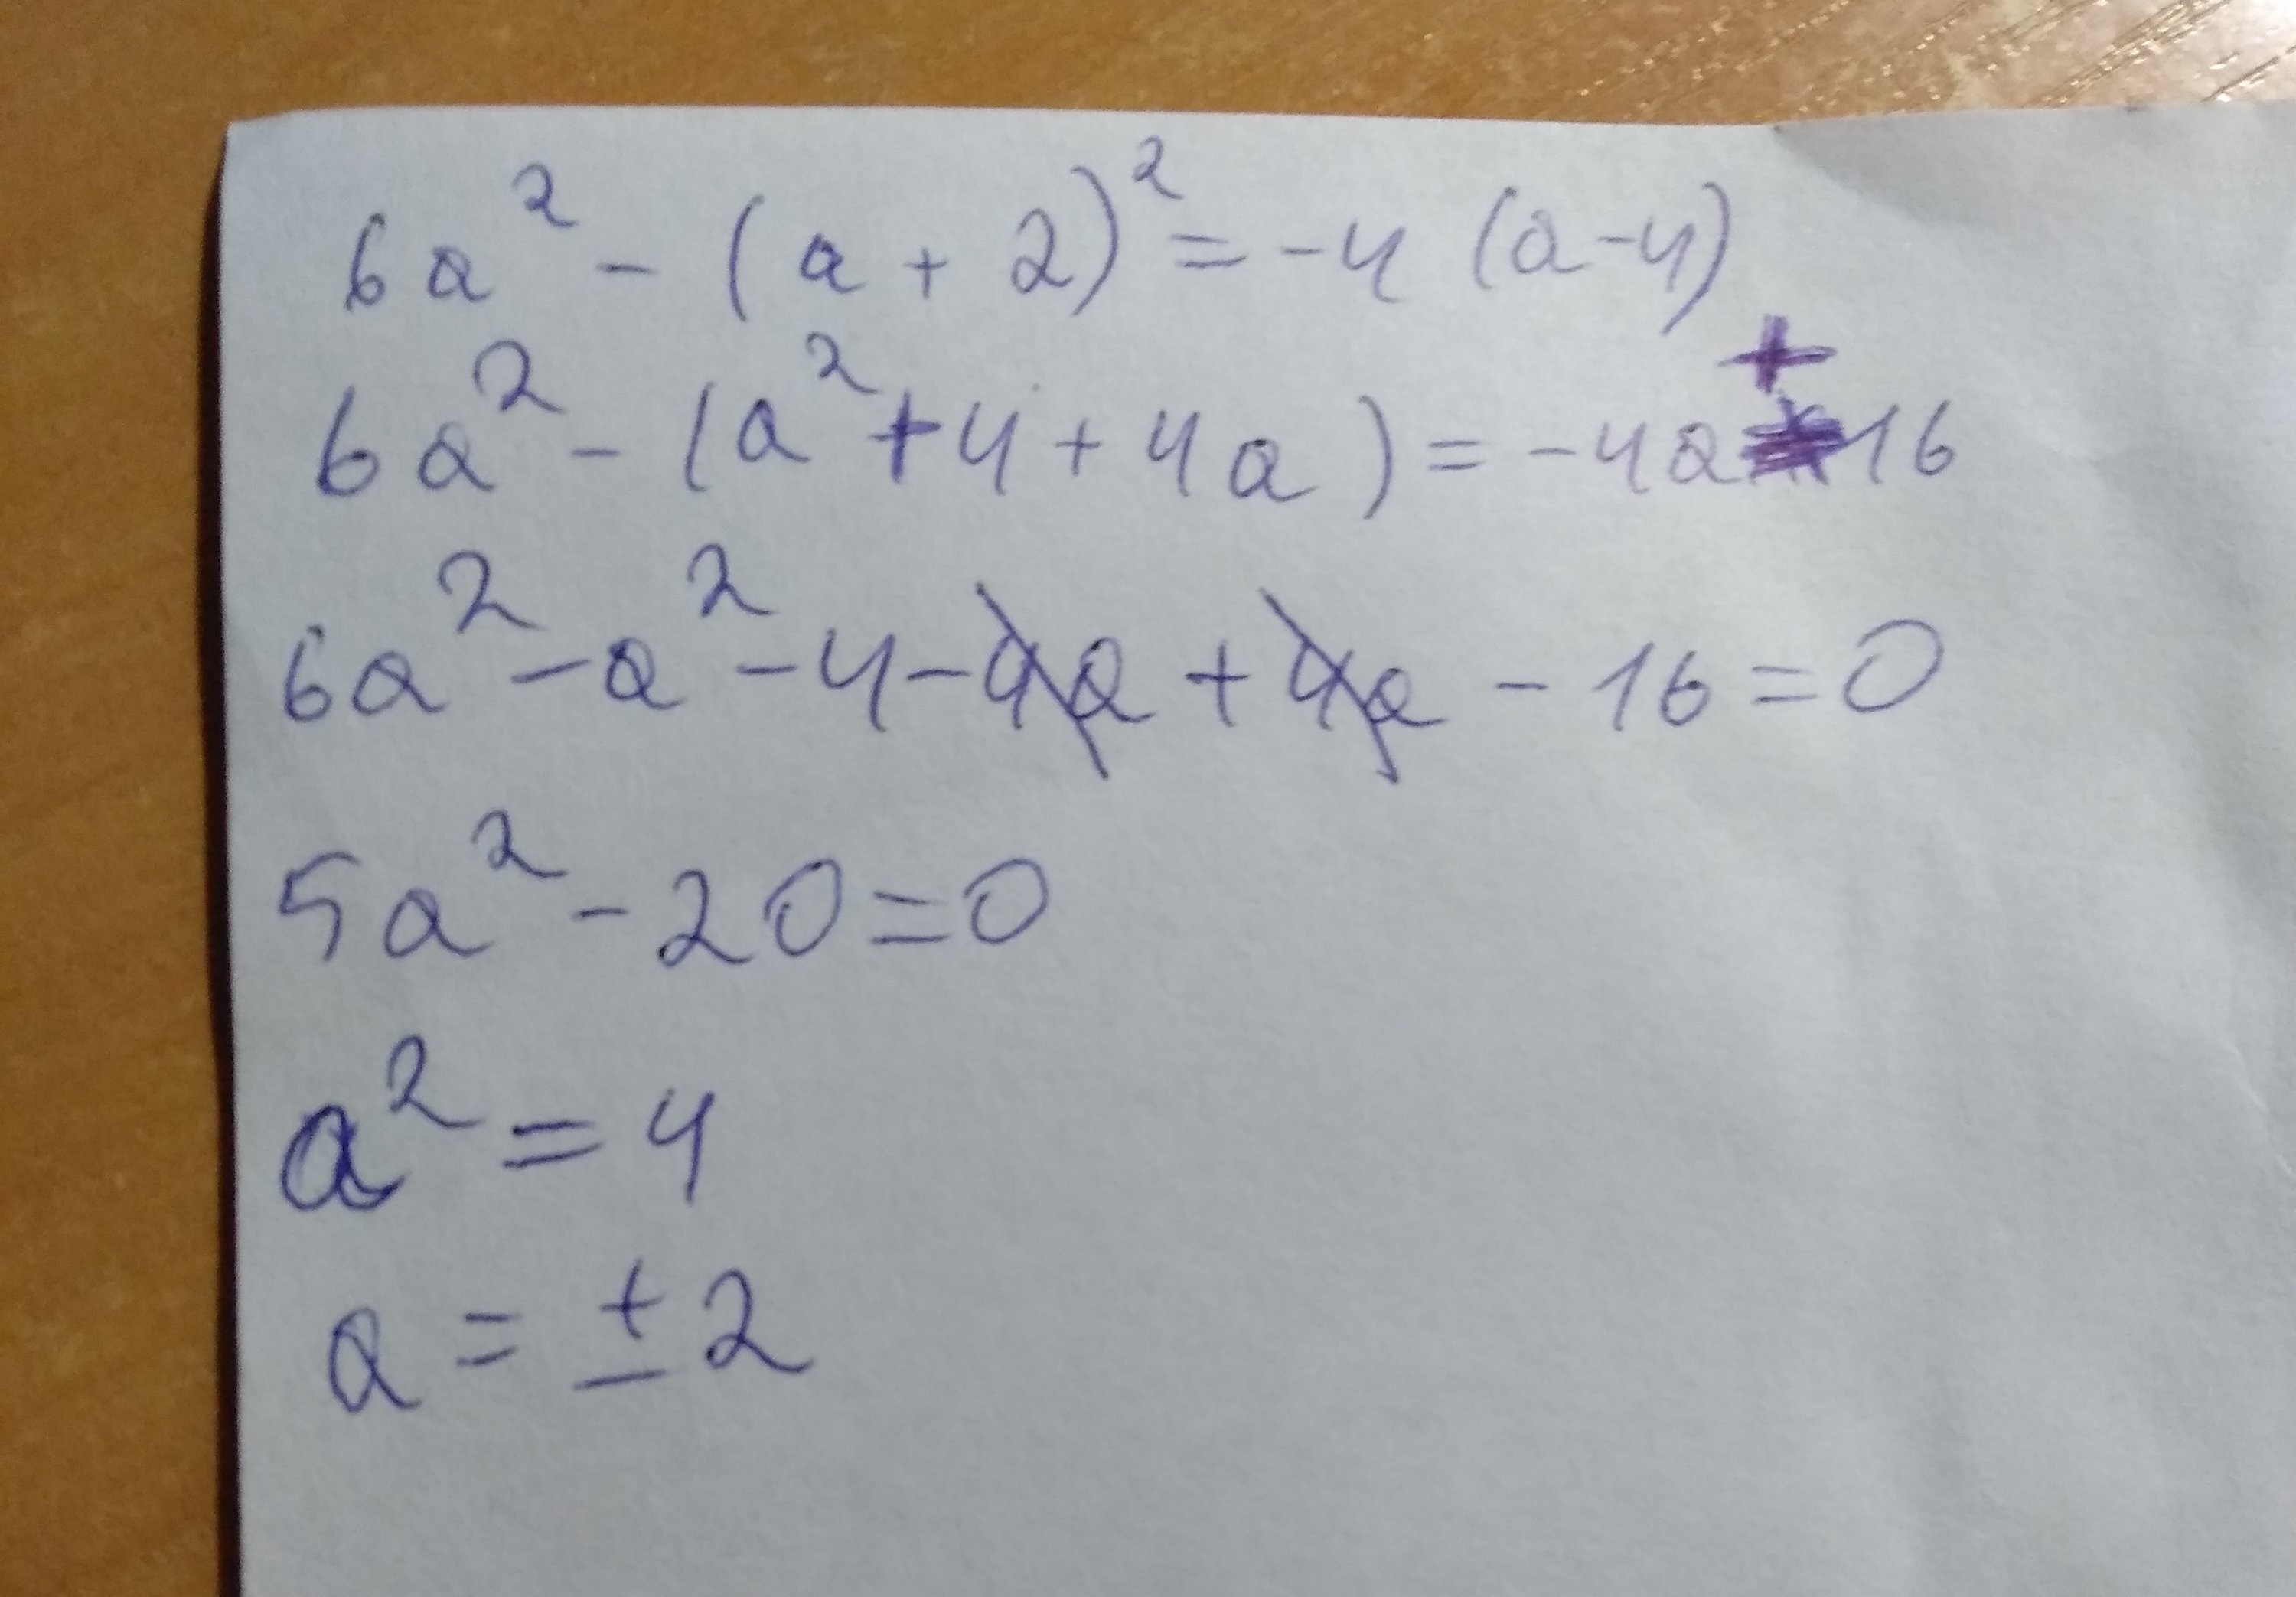 6a² - (a + 2)² = -4 (a-4)
6a² - (a² + 4 + 4a) = -4a + 16
6a² - a² - 4 - 4a + 4a - 16 = 0
5a² - 20 = 0
a² = 4
a = ± 2